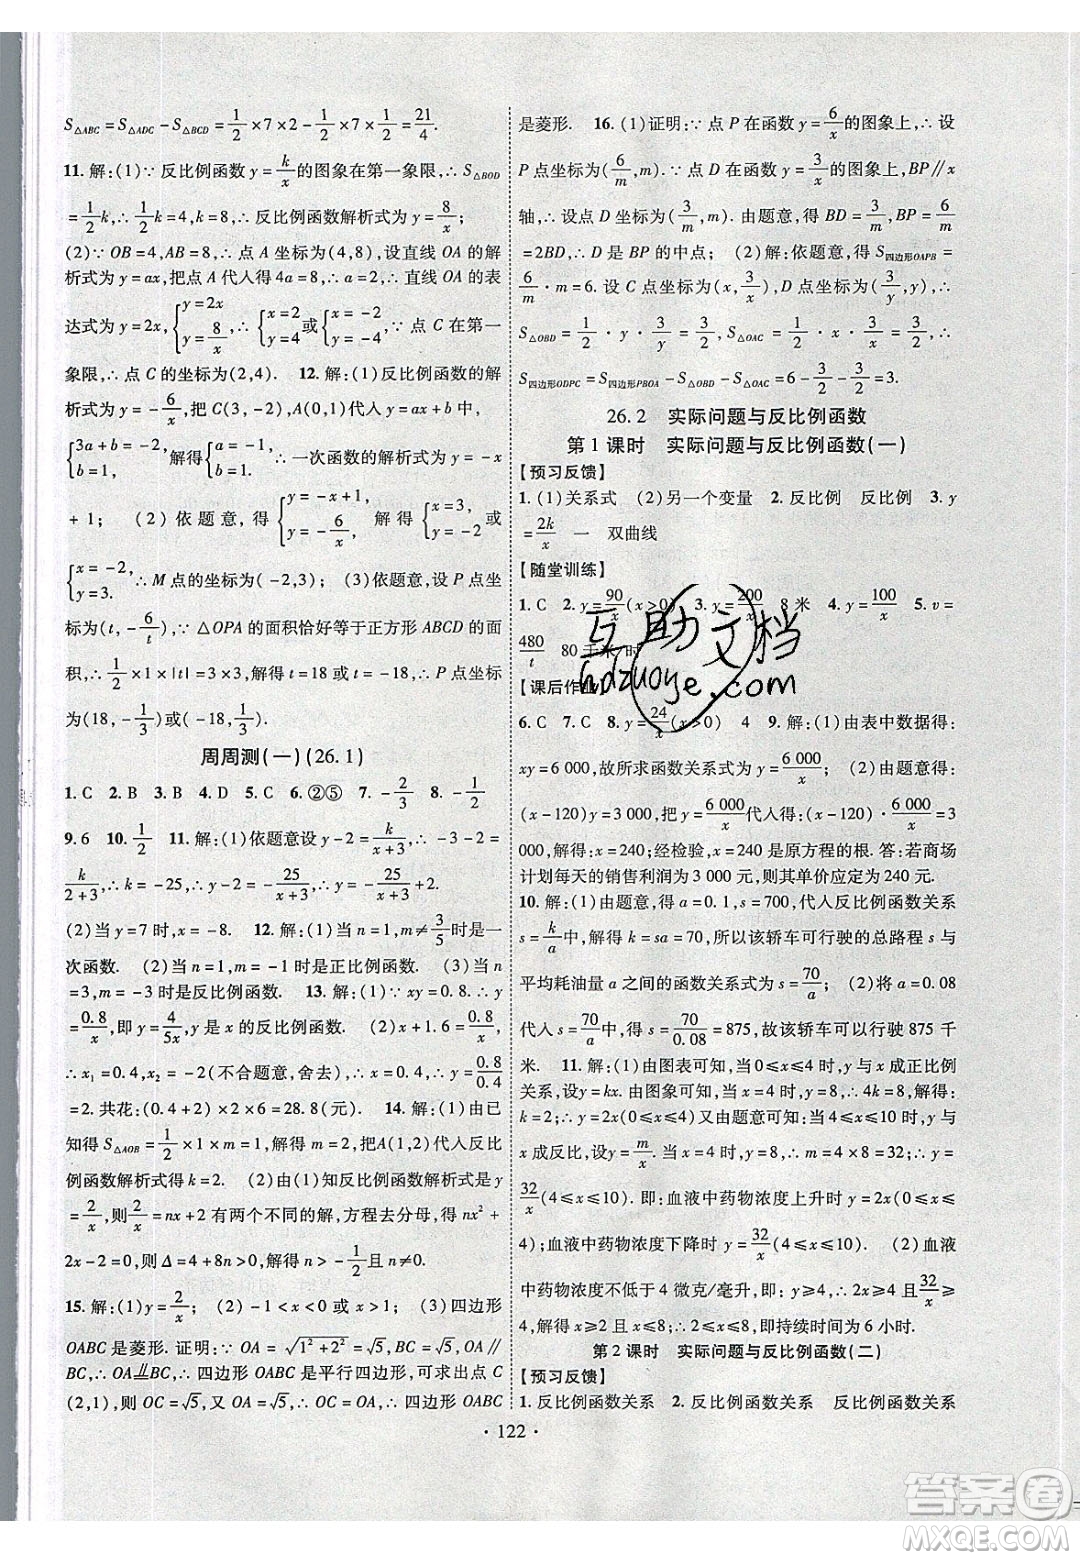 S△ABC = S△ADC − S△BCD = 1/2 ×7×2 − 1/2 ×7× 1/2 = 21/4.
11. 解:(1)∵ 反比例函数 y = k/x 的图象在第一象限,∴ S△BOD
= 1/2 k,∴ 1/2 k=4,k=8,∴ 反比例函数解析式为 y = 8/x;
(2)∵ OB=4,AB=8,∴ 点 A 坐标为(4,8),设直线 OA 的解
析式为 y=ax,把点 A 代人得 4a=8,∴ a=2,∴ 直线 OA 的表
达式为 y=2x, { y=2x y= 8/x ,∴ { x=2 y=4 或 { x=−2 y=−4 ,∵ 点 C 在第一
象限,∴ 点 C 的坐标为(2,4). 12. 解:(1)反比例函数的解
析式为 y=− 6/x ,把 C(3,−2),A(0,1)代人 y=ax+b 中,
{ 3a+b=−2 b=1 ,解得 { a=−1 b=1 ,∴ 一次函数的解析式为 y=−x
+1; (2)依题意,得 { y=−x+1, y=− 6/x , 解得 { x=3, y=−2 或
{ x=−2, y=3. ∴ M 点的坐标为(−2,3); (3)依题意,设 P 点坐
标为(t,− 6/t ),∵ △OPA 的面积恰好等于正方形 ABCD 的面
积,∴ 1/2 ×1×|t|=3×3,解得 t=18 或−18,∴ P 点坐标为
(18,− 1/3 )或(−18, 1/3 ).
周周测(一)(26.1)
1. C 2. B 3. B 4. D 5. C 6. ②⑤ 7. − 2/3 8. − 1/2
9. 6 10. 1/2 11. 解:(1)依题意设 y−2= k/(x+3) ,∴ −3−2=
k/(2+3) ,∴ k=−25,∴ y−2=− 25/(x+3) ,∴ y=− 25/(x+3) +2.
(2)当 y=7 时,x=−8. 12. 解:(1)当 n=1,m≠ 3/5 时是一
次函数. (2)当 n=1,m=−1 时是正比例函数. (3)当 n
=3,m=−3 时是反比例函数. 13. 解:(1)∵ xy=0.8.∴ y=
0.8/x ,即 y= 4/5x ,y 是 x 的反比例函数. (2)x+2x²=1.6.
∴ x₁=0.4,x₂=−2(不合题意,舍去),∴ x=0.4,y= 0.8/0.4
=2. 共花:(0.4+2)×2×6=28.8(元). 14. 解:(1)由已
知得 S△AOB= 1/2 ×1×m=1,解得 m=2,把A(1,2)代人反比
例函数解析式得 k=2. (2)由(1)知反比例函数解析式是 y
= 2/x ,则 2/x =nx+2 有两个不同的解,方程去分母,得 nx²+
2x−2=0,则 Δ=4+8n>0,解得 n>− 1/2 且 n≠0.
15. 解:(1)y= 2/x ; (2)−1<x<0 或 x>1; (3)四边形
OABC 是菱形. 证明:∵ OA=√1²+2²=√5,BC=√5,OA∥
BC,∴ OA⊥⊥BC,∴ 四边形 OABC 是平行四边形,可求出点 C
(2,1),则 OC=√5,又 OA=√5,∴ OC=OA,∴ 四边形 OABC
是菱形. 16. (1)证明:∵ 点 P 在函数 y= 6/x 的图象上,∴ 设
P 点坐标为( 6/m ,m). ∵ 点 D 在函数 y= 3/x 的图象上,BP∥x
轴,∴ 设点 D 坐标为( 3/m ,m). 由题意,得 BD= 3/m ,BP= 6/m
=2BD,∴ D 是 BP 的中点; (2)解:依题意,得 S四边形OAPB=
6/m ·m=6. 设 C 点坐标为(x, 3/x ),D 点坐标为( 3/y ,y),∴
S△OBD= 1/2 ·y· 3/y = 3/2 ,S△OAC= 1/2 ·x· 3/x = 3/2 ,∴
S四边形ODPC=S四边形PBOA−S△OBD−S△OAC=6− 3/2 − 3/2 =3.
26.2 实际问题与反比例函数
第 1 课时 实际问题与反比例函数(一)
【预习反馈】
1. (1)关系式 (2)另一个变量 2. 反比例 反比例 3. y
= 2k/x 一 双曲线
【随堂训练】
1. C 2. y= 90/x (x>0) 3. y= 200/x 8 米 4. y= 100/x 5. v=
480/t 80 千米/时
【课后作业】
6. C 7. C 8. y= 24/x (x>0) 4 9. 解:(1)由表中数据得:
xy=6 000,故所求函数关系式为 y= 6 000/x ; (2)由题意得:
(x−120)y=3 000,把 y= 6 000/x 代人得:(x−120)· 6 000/x =3
000,解得:x=240;经检验,x=240 是原方程的根. 答:若商场
计划每天的销售利润为 3 000 元,则其单价应定为 240 元.
10. 解:(1)由题意,得 a=0.1,s=700,代人反比例函数关系
s= k/a 中,解得:k=sa=70,所以该轿车可行驶的总路程 s 与
平均耗油量 a 之间的函数关系式为 s= 70/a ; (2)将 a=0.08
代人 s= 70/a 中,得 s= 70/0.08 =875,故该轿车可以行驶 875 千
米. 11. 解:(1)由图表可知,当 0≤x≤4 时,y 与 x 成正比例
关系,设 y=kx. 由图象可知,当 x=4 时,y=8,∴ 4k=8,解得:
k=2;∴ y=2x(0≤x≤4)又由题意可知:当 4≤x≤10 时,y 与
x 成反比,设 y= m/x . 当 x=4 时,y=8,∴ m=4×8=32;∴ y=
32/x (4≤x≤10). 即:血液中药物浓度上升时 y=2x(0≤x≤
4);血液中药物浓度下降时 y= 32/x (4≤x≤10). (2)血液
中药物浓度不低于 4 微克/毫升,即:y≥4,∴ 2x≥4 且 32/x ≥
4,解得 x≥2 且 x≤8;∴ 2≤x≤8,即持续时间为 6 小时.
第 2 课时 实际问题与反比例函数(二)
【预习反馈】
1. 反比例函数关系 2. 反比例函数关系 反比例函数关系
· 122 ·
互助文档
hdzuoye.com
答案圈
MXQE.COM